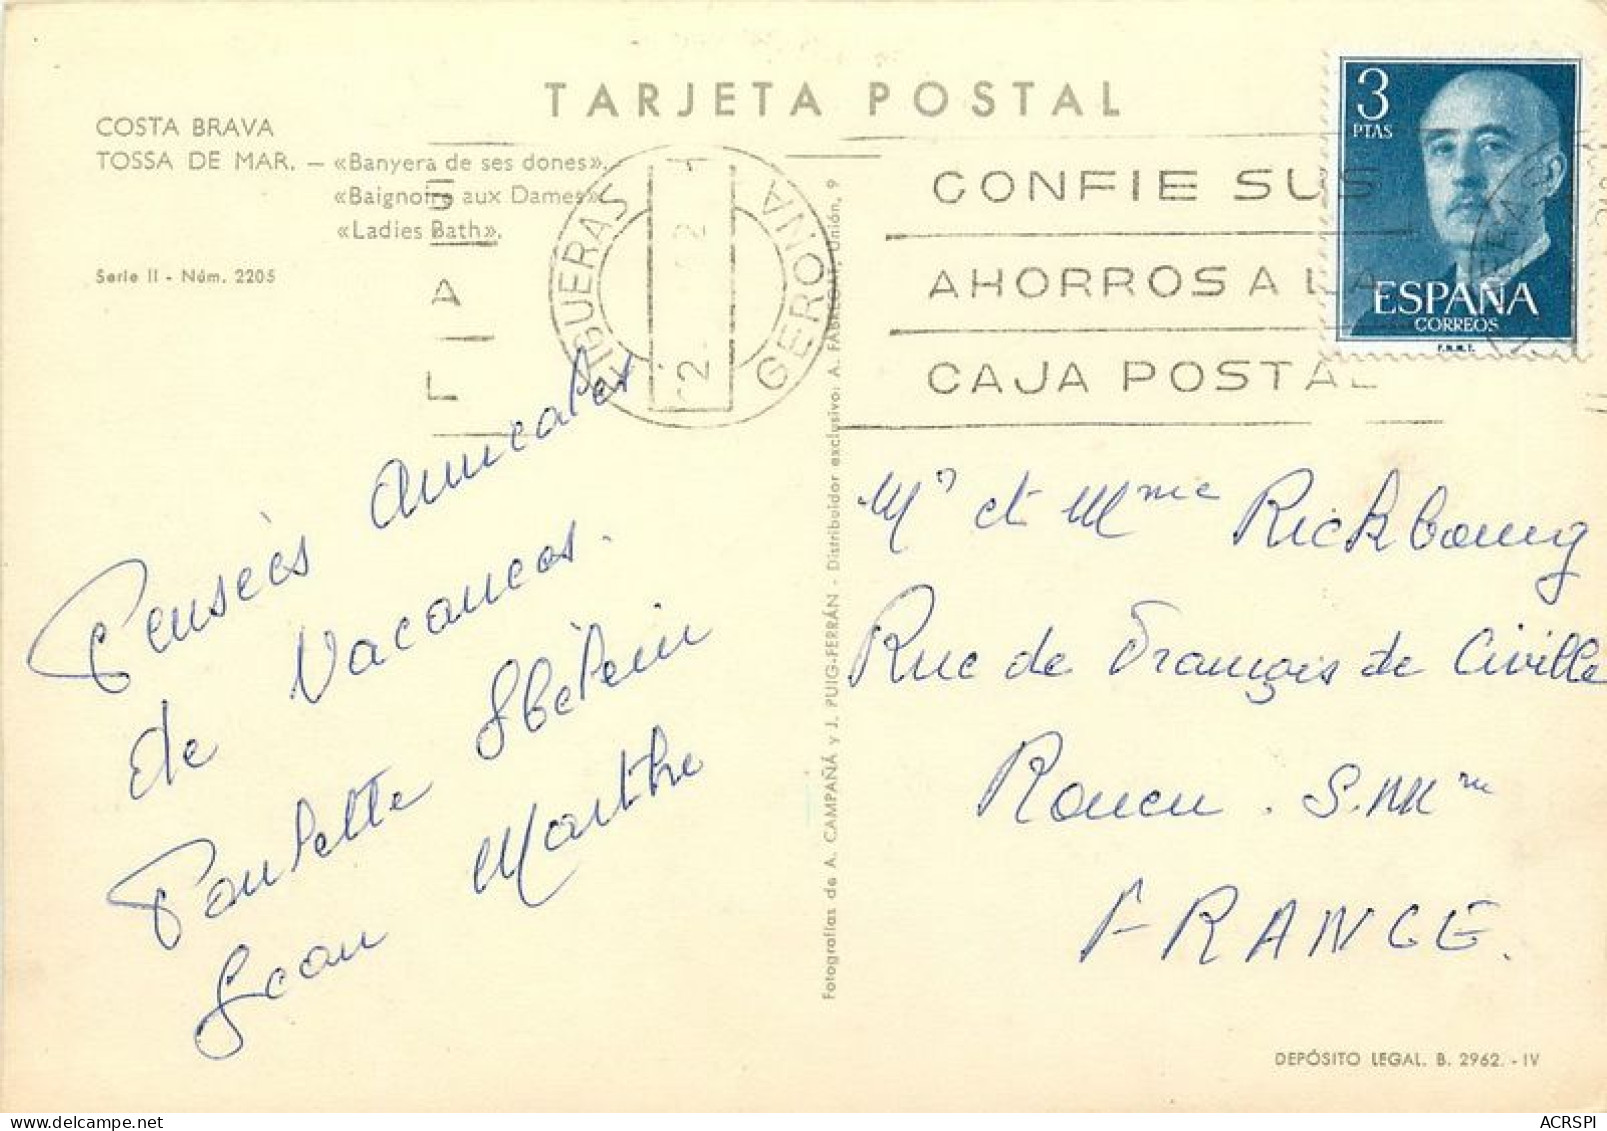 TARJETA POSTAL
COSTA BRAVA
TOSSA DE MAR. — «Banyera de ses dones».
«Baignoire aux Dames».
«Ladies Bath».
Serie II - Núm. 2205
FIGUERAS
GERONA
CONFIE SUS
AHORROS A LA
CAJA POSTAL
3
PTAS
ESPAÑA
CORREOS
F.N.M.T.
Pensées amicales
de Vacances.
Paulette
Jean Marthe
Fotografías de A. CAMPAÑÁ y J. PUIG-FERRÁN - Distribuidor exclusivo: A. FABREGAT, Unión, 9
Mr et Mme Rickbourg
Rue de François de Civille
Rouen . S. Mme
FRANCE.
DEPÓSITO LEGAL. B. 2962. - IV
ACRSPI